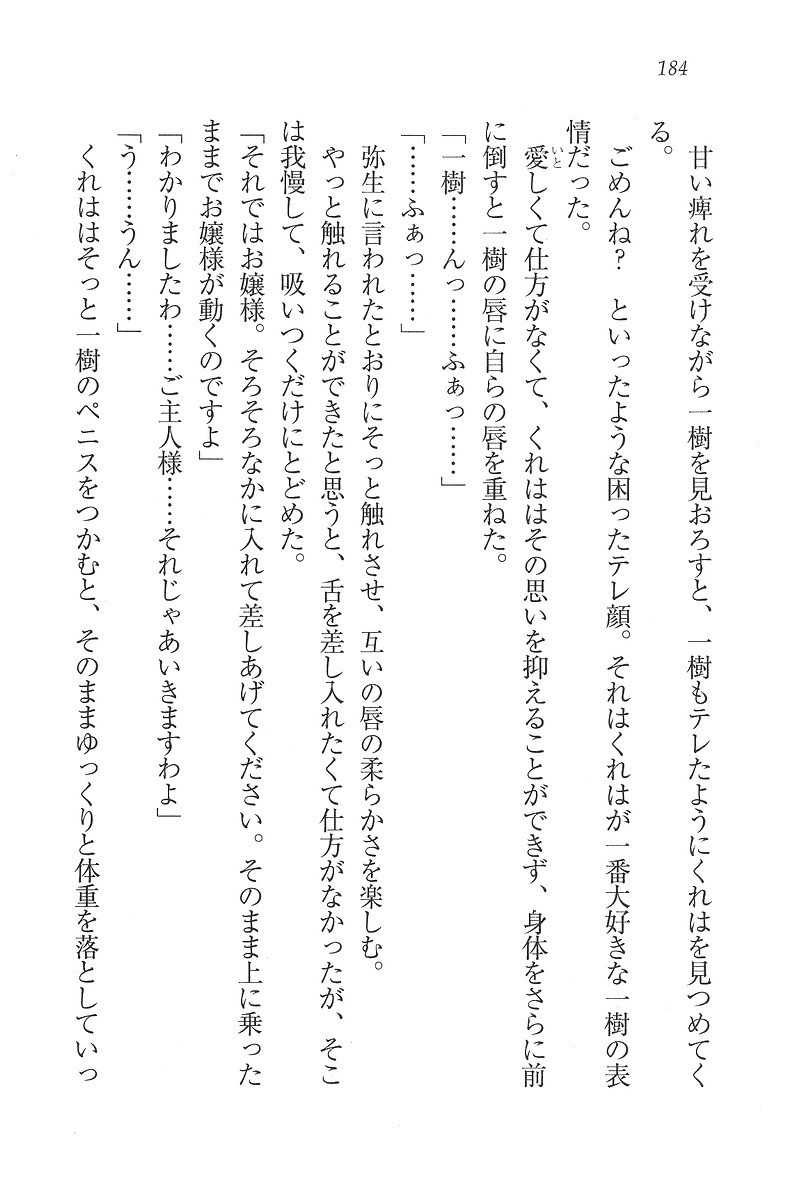 184
甘い痺れを受けながら一樹を見おろすと、一樹もテレたようにくれはを見つめてく
る。
ごめんね？　といったような困ったテレ顔。それはくれはが一番大好きな一樹の表
情だった。
愛しくて仕方がなくて、くれははその思いを抑えることができず、身体をさらに前
いと
に倒すと一樹の唇に自らの唇を重ねた。
「一樹……んっ……ふぁっ……」
「……ふぁっ……」
弥生に言われたとおりにそっと触れさせ、互いの唇の柔らかさを楽しむ。
やっと触れることができたと思うと、舌を差し入れたくて仕方がなかったが、そこ
は我慢して、吸いつくだけにとどめた。
「それではお嬢様。そろそろなかに入れて差しあげてください。そのまま上に乗った
ままでお嬢様が動くのですよ」
「わかりましたわ……ご主人様……それじゃあいきますわよ」
「う……うん……」
くれははそっと一樹のペニスをつかむと、そのままゆっくりと体重を落としていっ